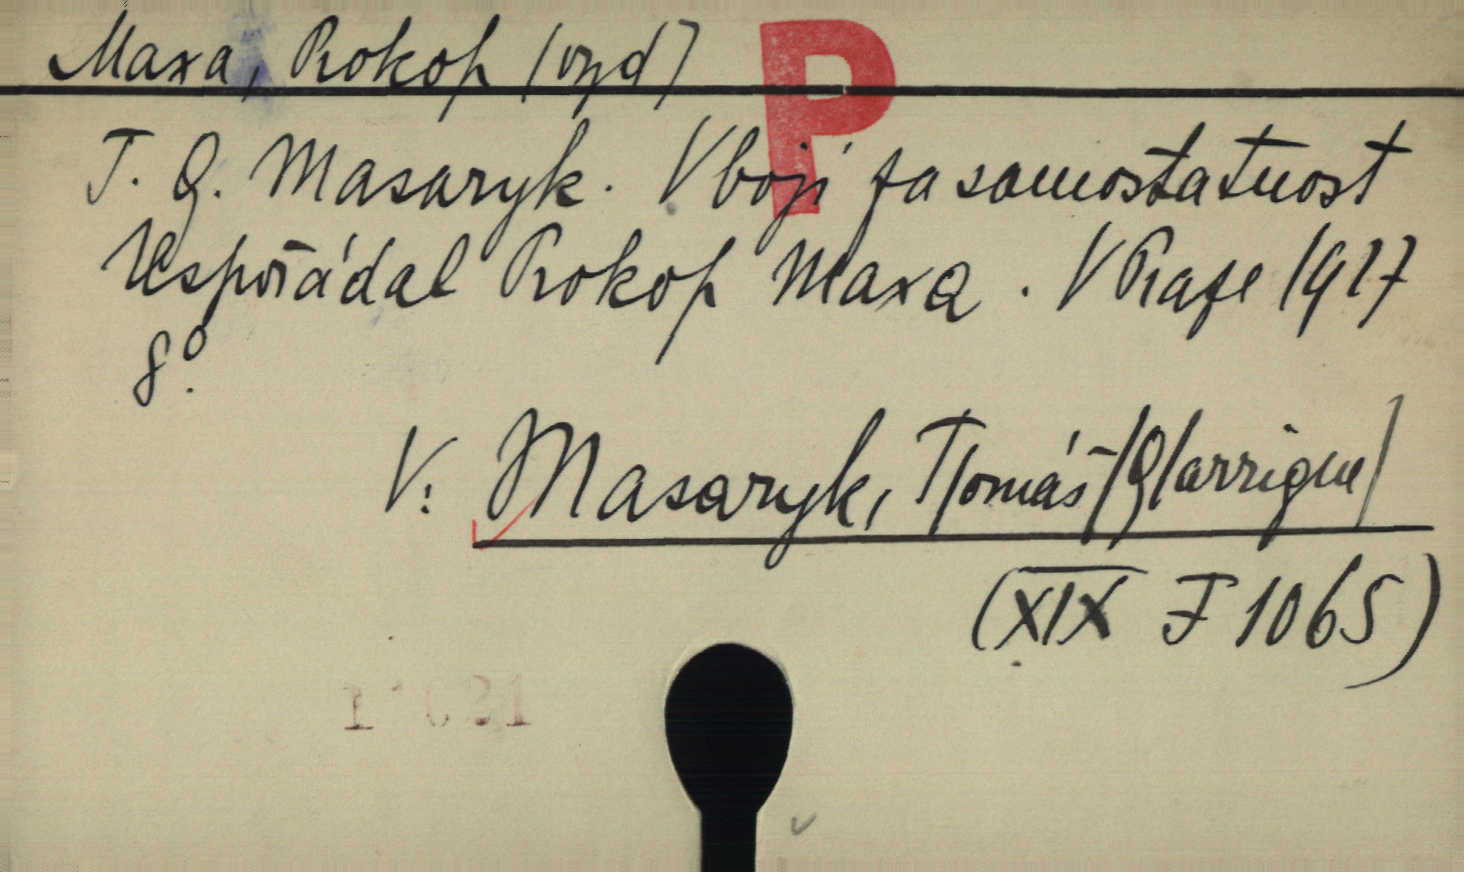 Maxa, Prokop (vyd)
P
T. G. Masaryk. V boji za samostatnost
Uspořádal Prokop Maxa. V Praze 1927
8°.
V: Masaryk, T/omáš/G/arrigue/
(XIX F 1065)